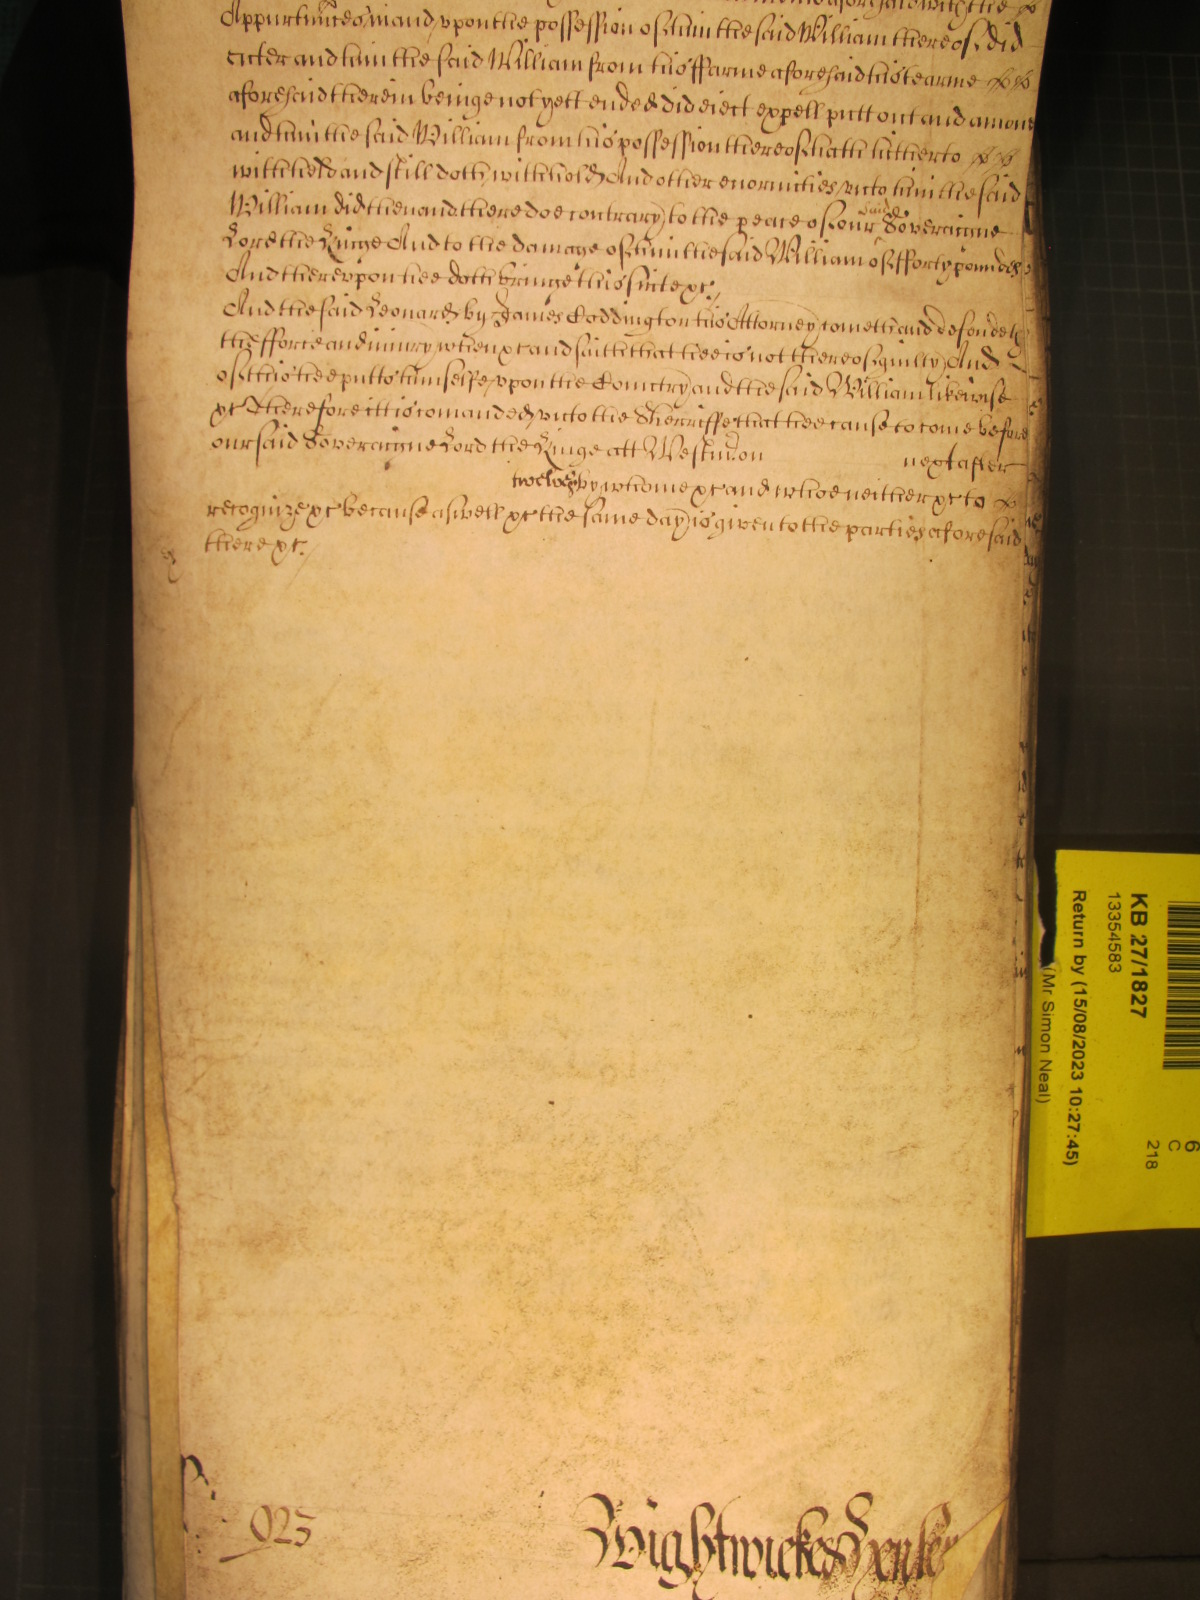 aforesaid with the
Appurtunces in and vpon the possession of him the said William thereof did
enter and him the said William from his ffarme aforesaid his tearme
aforesaid therein beinge not yett ended did eiect expell putt out and amove
and him the said William from his possession thereof hath hitherto
withheld and still doth withhold And other enormities vnto him the said
William did then and there doe contrary to the peace of our said Soveraigne
Lord the Kinge And to the damage of him the said William of fforty pounds
And therevpon hee doth bringe this suite &c.
And the said Leonard by James Coddington his Attorney cometh and defendeth
the fforce and iniury when &c and saith that hee is not thereof guilty And
of this hee putts himselfe vpon the Countrey and the said William likewise
&c Therefore itt is comanded vnto the Sherriffe that hee cause to come before
our said Soveraigne Lord the Kinge att Westm on next after
twelve &c by whome &c and whoe neither &c to
recognize &c because aswell &c the same day is given to the parties aforesaid
there &c.
KB 27/1827
13354583
Return by (15/08/2023 10:27:45)
(Mr Simon Neal)
6
C
218
923
Wightwicke